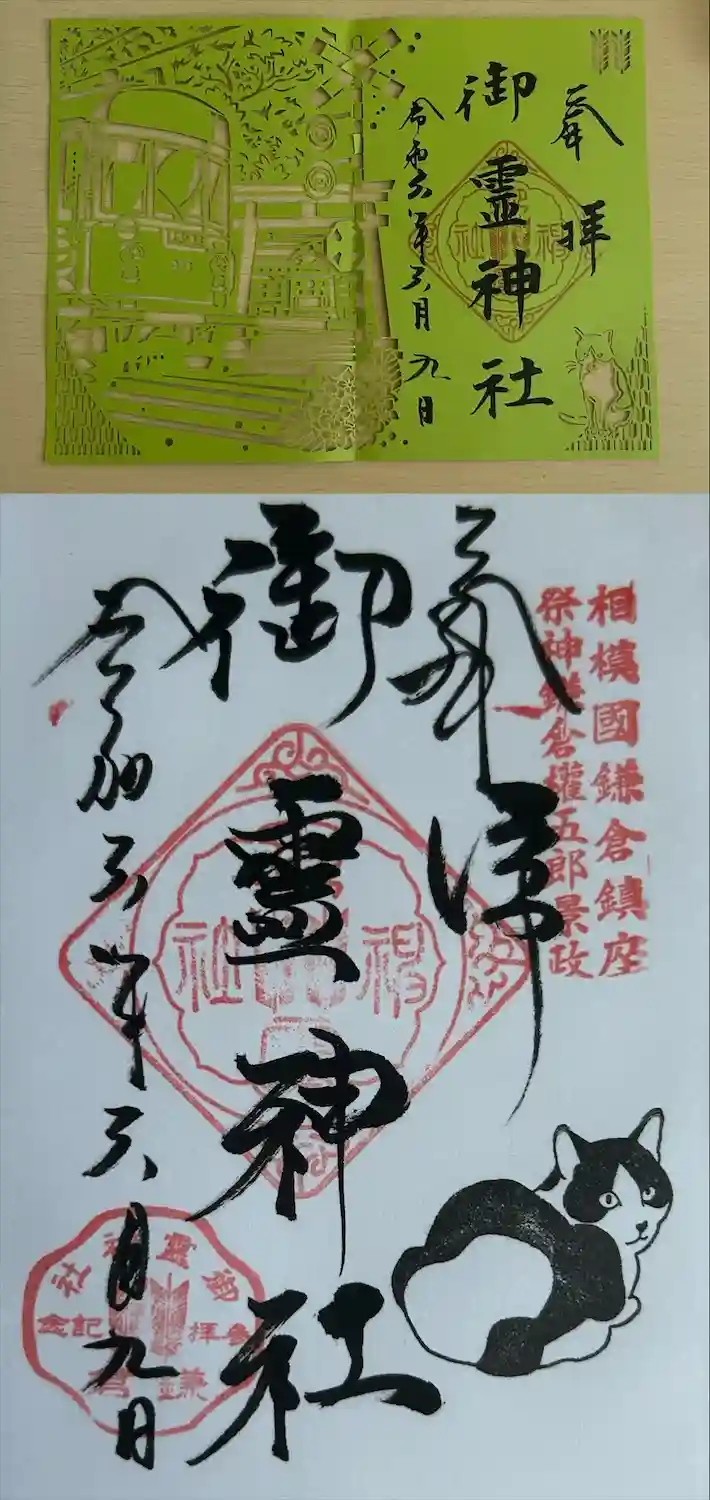 奉拝
御霊神社
令和六年六月九日
相模國鎌倉鎮座
祭神鎌倉権五郎景政
奉拝
御霊神社
令和六年六月九日
御霊神社
参拝記念
鎌倉